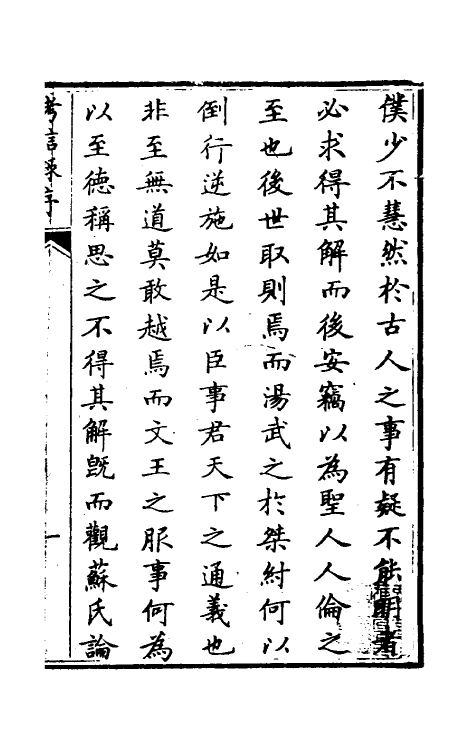 僕少不慧然於古人之事有疑不能明者
必求得其解而後安竊以為聖人人倫之
至也後世取則焉而湯武之於桀紂何以
倒行逆施如是以臣事君天下之通義也
非至無道莫敢越焉而文王之服事何為
以至德稱思之不得其解旣而觀蘇氏論
序
一